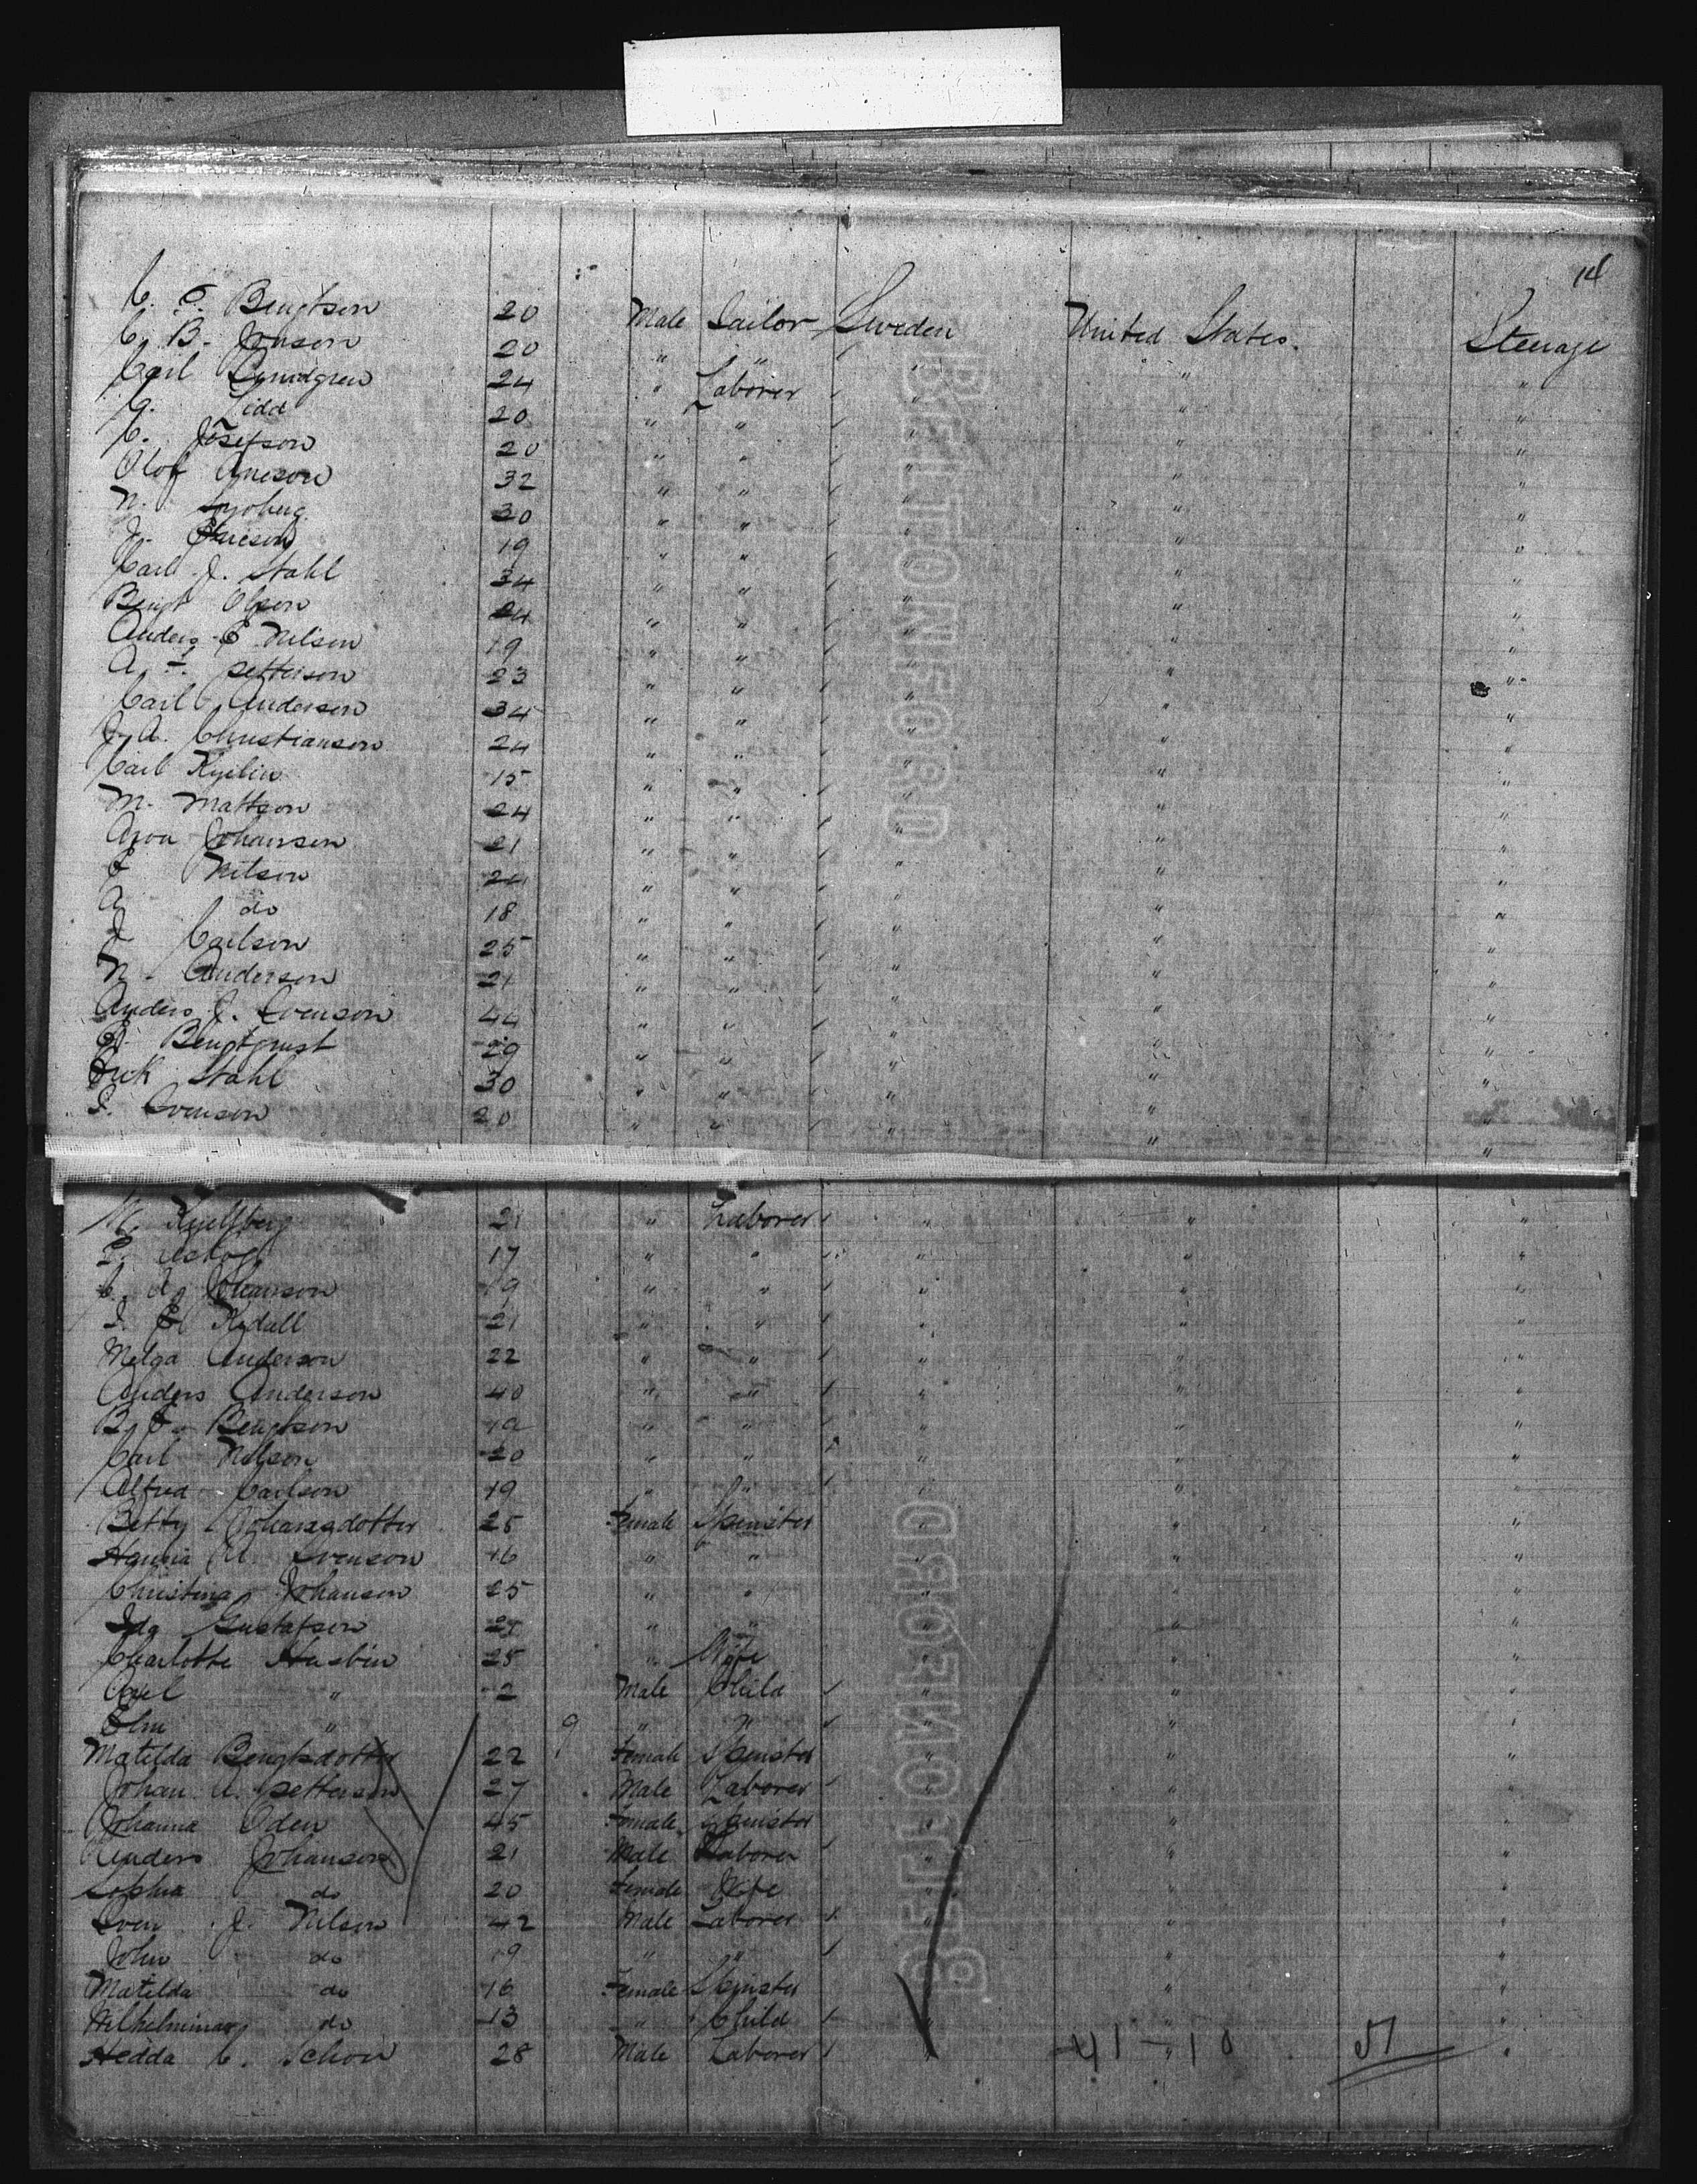 14
C. F. Bengtson 20 Male Sailor Sweden United States. Steerage
C. B. Jonson 20 " " " " "
Carl Lundgren 24 " Laborer " " "
G. Lidd 20 " " " " "
C. Josefson 20 " " " " "
Olof Aneson 32 " " " " "
N. Sjoberg 30 " " " " "
J. 19 " " " " "
Carl J. Stahl 34 " " " " "
Bengt Olson 24 " " " " "
Anders E Nilson 19 " " " " "
A. Petterson 23 " " " " "
Carl Anderson 34 " " " " "
J. A. Christianson 24 " " " " "
Carl 15 " " " " "
M. Mattson 24 " " " " "
Johanson 21 " " " " "
Nilson 24 " " " " "
A do 18 " " " " "
J Carlson 25 " " " " "
N. Anderson 21 " " " " "
Anders J. Svenson 44 " " " " "
Bengtquist 29 " " " " "
Erik Stahl 30 " " " " "
Svenson 20 " " " " "
21 " Laborer " " "
17 " " " " "
C. A. Johanson 19 " " " " "
Rydall 21 " " " " "
Anderson 22 " " " " "
Anders Anderson 40 " " " " "
B. Bengtson 19 " " " " "
Carl Nilson 20 " " " " "
Alfred Carlson 19 " " " " "
Betty Johansdotter 25 Female Spinster " " "
Hanna A. Svenson 16 " " " " "
Christina Johanson 25 " " " " "
Ida Gustafson 21 " " " " "
Charlotte Husbin 25 " Wife " " "
Axel " 2 Male Child " " "
Elm " 9 " " " " "
Matilda Bengtsdotter 22 Female Spinster " " "
Johan A. Petterson 27 Male Laborer " " "
Johanna Oden 45 Female Spinster " " "
Anders Johanson 21 Male Laborer " " "
Sophia do 20 Female Wife " " "
Sven J. Nilson 42 Male Laborer " " "
John do 19 " " " " "
Matilda do 16 Female Spinster " " "
Wilhelmina do 13 " Child " " "
Hedda C. Schon 28 Male Laborer " " "
41 - 10 51
BELTONFORD
BELTONFORD